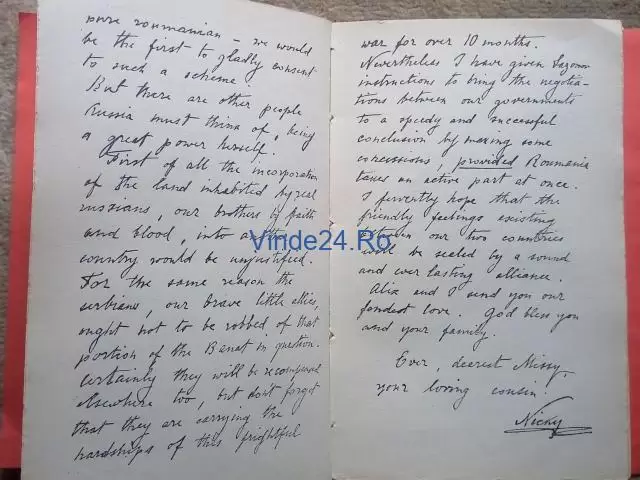 pure roumanian – we would
be the first to gladly consent
to such a scheme.
But there are other people
Russia must think of, being
a great power herself.
First of all the incorporation
of the land inhabited by real
russians, our brothers by faith
and blood, into another
country would be unjustified.
For the same reason the
serbians, our brave little allies,
ought not to be robbed of that
portion of the Banat in question.
Certainly they will be recompensed
elsewhere too, but don't forget
that they are carrying the
hardships of this frightful
war for over 10 months.
Nevertheless I have given Sazonov
instructions to bring the negotia-
tions between our governments
to a speedy and successful
conclusion by making some
concessions, provided Roumania
takes an active part at once.
I fervently hope that the
friendly feelings existing
between our two countries
will be sealed by a sound
and ever lasting alliance.
Alix and I send you our
fondest love. God bless you
and your family.
Ever, dearest Missy,
your loving cousin.
Nicky
Vinde24.Ro